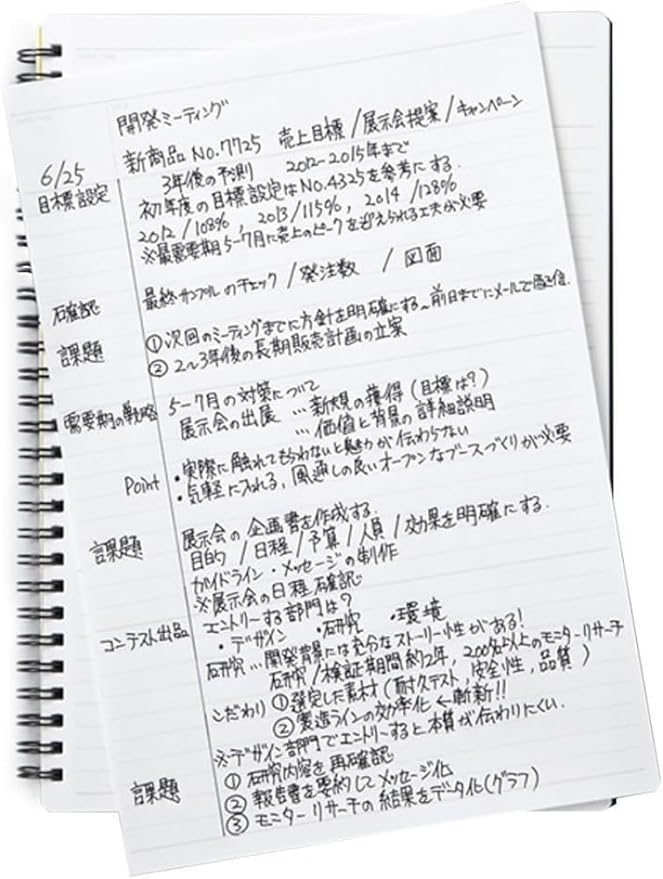 開発ミーティング
6/25 新商品 No.7725 売上目標/展示会提案/キャンペーン
目標設定 3年後の予測 2012-2015年まで
初年度の目標設定はNo.4325を参考にする.
2012/108%, 2013/115%, 2014/128%
※最需要期5-7月に売上のピークを迎えられる工夫が必要
確認 最終サンプルのチェック/発注数 /図面
課題 ①次回のミーティングまでに方針を明確にする〜前日までにメールで返信.
② 2〜3年後の長期販売計画の立案
需要期の戦略 5-7月の対策について
展示会の出展 …新規の獲得(目標は?)
…価値と背景の詳細説明
Point ・実際に触れてもらわないと魅力が伝わらない
・気軽に入れる, 風通しの良いオープンなブースづくりが必要
課題 展示会の企画書を作成する.
目的/日程/予算/人員/効果を明確にする.
ガイドライン・メッセージの制作
※展示会の日程確認
コンテスト出品 エントリーする部門は?
・デザイン ・研究 ・環境
研究…開発背景には充分なストーリー性がある!
研究/検証期間約2年, 200名以上のモニターリサーチ
こだわり ①選定した素材(耐久テスト, 安全性, 品質)
②製造ラインの効率化←斬新!!
※デザイン部門でエントリーすると本質が伝わりにくい.
課題 ① 研究内容を再確認
② 報告書を要約してメッセージ化
③ モニターリサーチの結果をデータ化(グラフ)